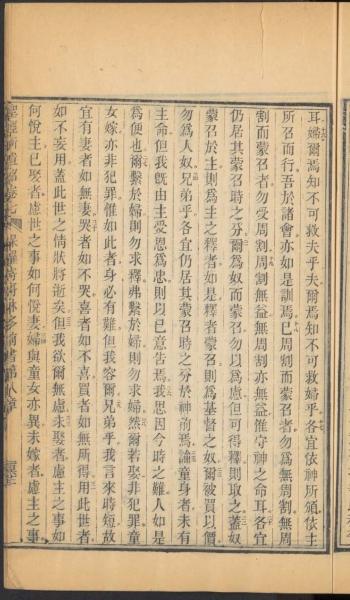 耳婦爾焉知不可救夫乎夫爾焉知不可救婦乎各宜依神所頒依主
所召而行吾於諸會亦如是訓焉已周割而蒙召者勿爲無周割無周
割而蒙召者勿受周割周割無益無周割亦無益惟守神之命耳各宜
仍居其蒙召時之分爾爲奴而蒙召勿以爲慮但可得釋則取之蓋奴
蒙召於主則爲主之釋者如是釋者蒙召則爲基督之奴爾被買以價
勿爲人奴兄弟乎各宜仍居其蒙召時之分於神前焉論童身者未有
主命但我既由主受恩爲忠則以己意告焉我思因今時之難人如是
爲便也爾繫於婦則勿求釋弗繫於婦則勿求婦然爾若娶非犯罪童
女嫁亦非犯罪惟如此者身必有難但我容爾兄弟乎我言來時短故
宜有妻者如無妻哭者如不哭喜者如不喜買者如無所得用此世者
如不妄用蓋此世之情狀將逝矣但我欲爾無慮未娶者慮主之事如
何悅主已娶者慮世之事如何悅妻婦與童女亦異未嫁者慮主之事